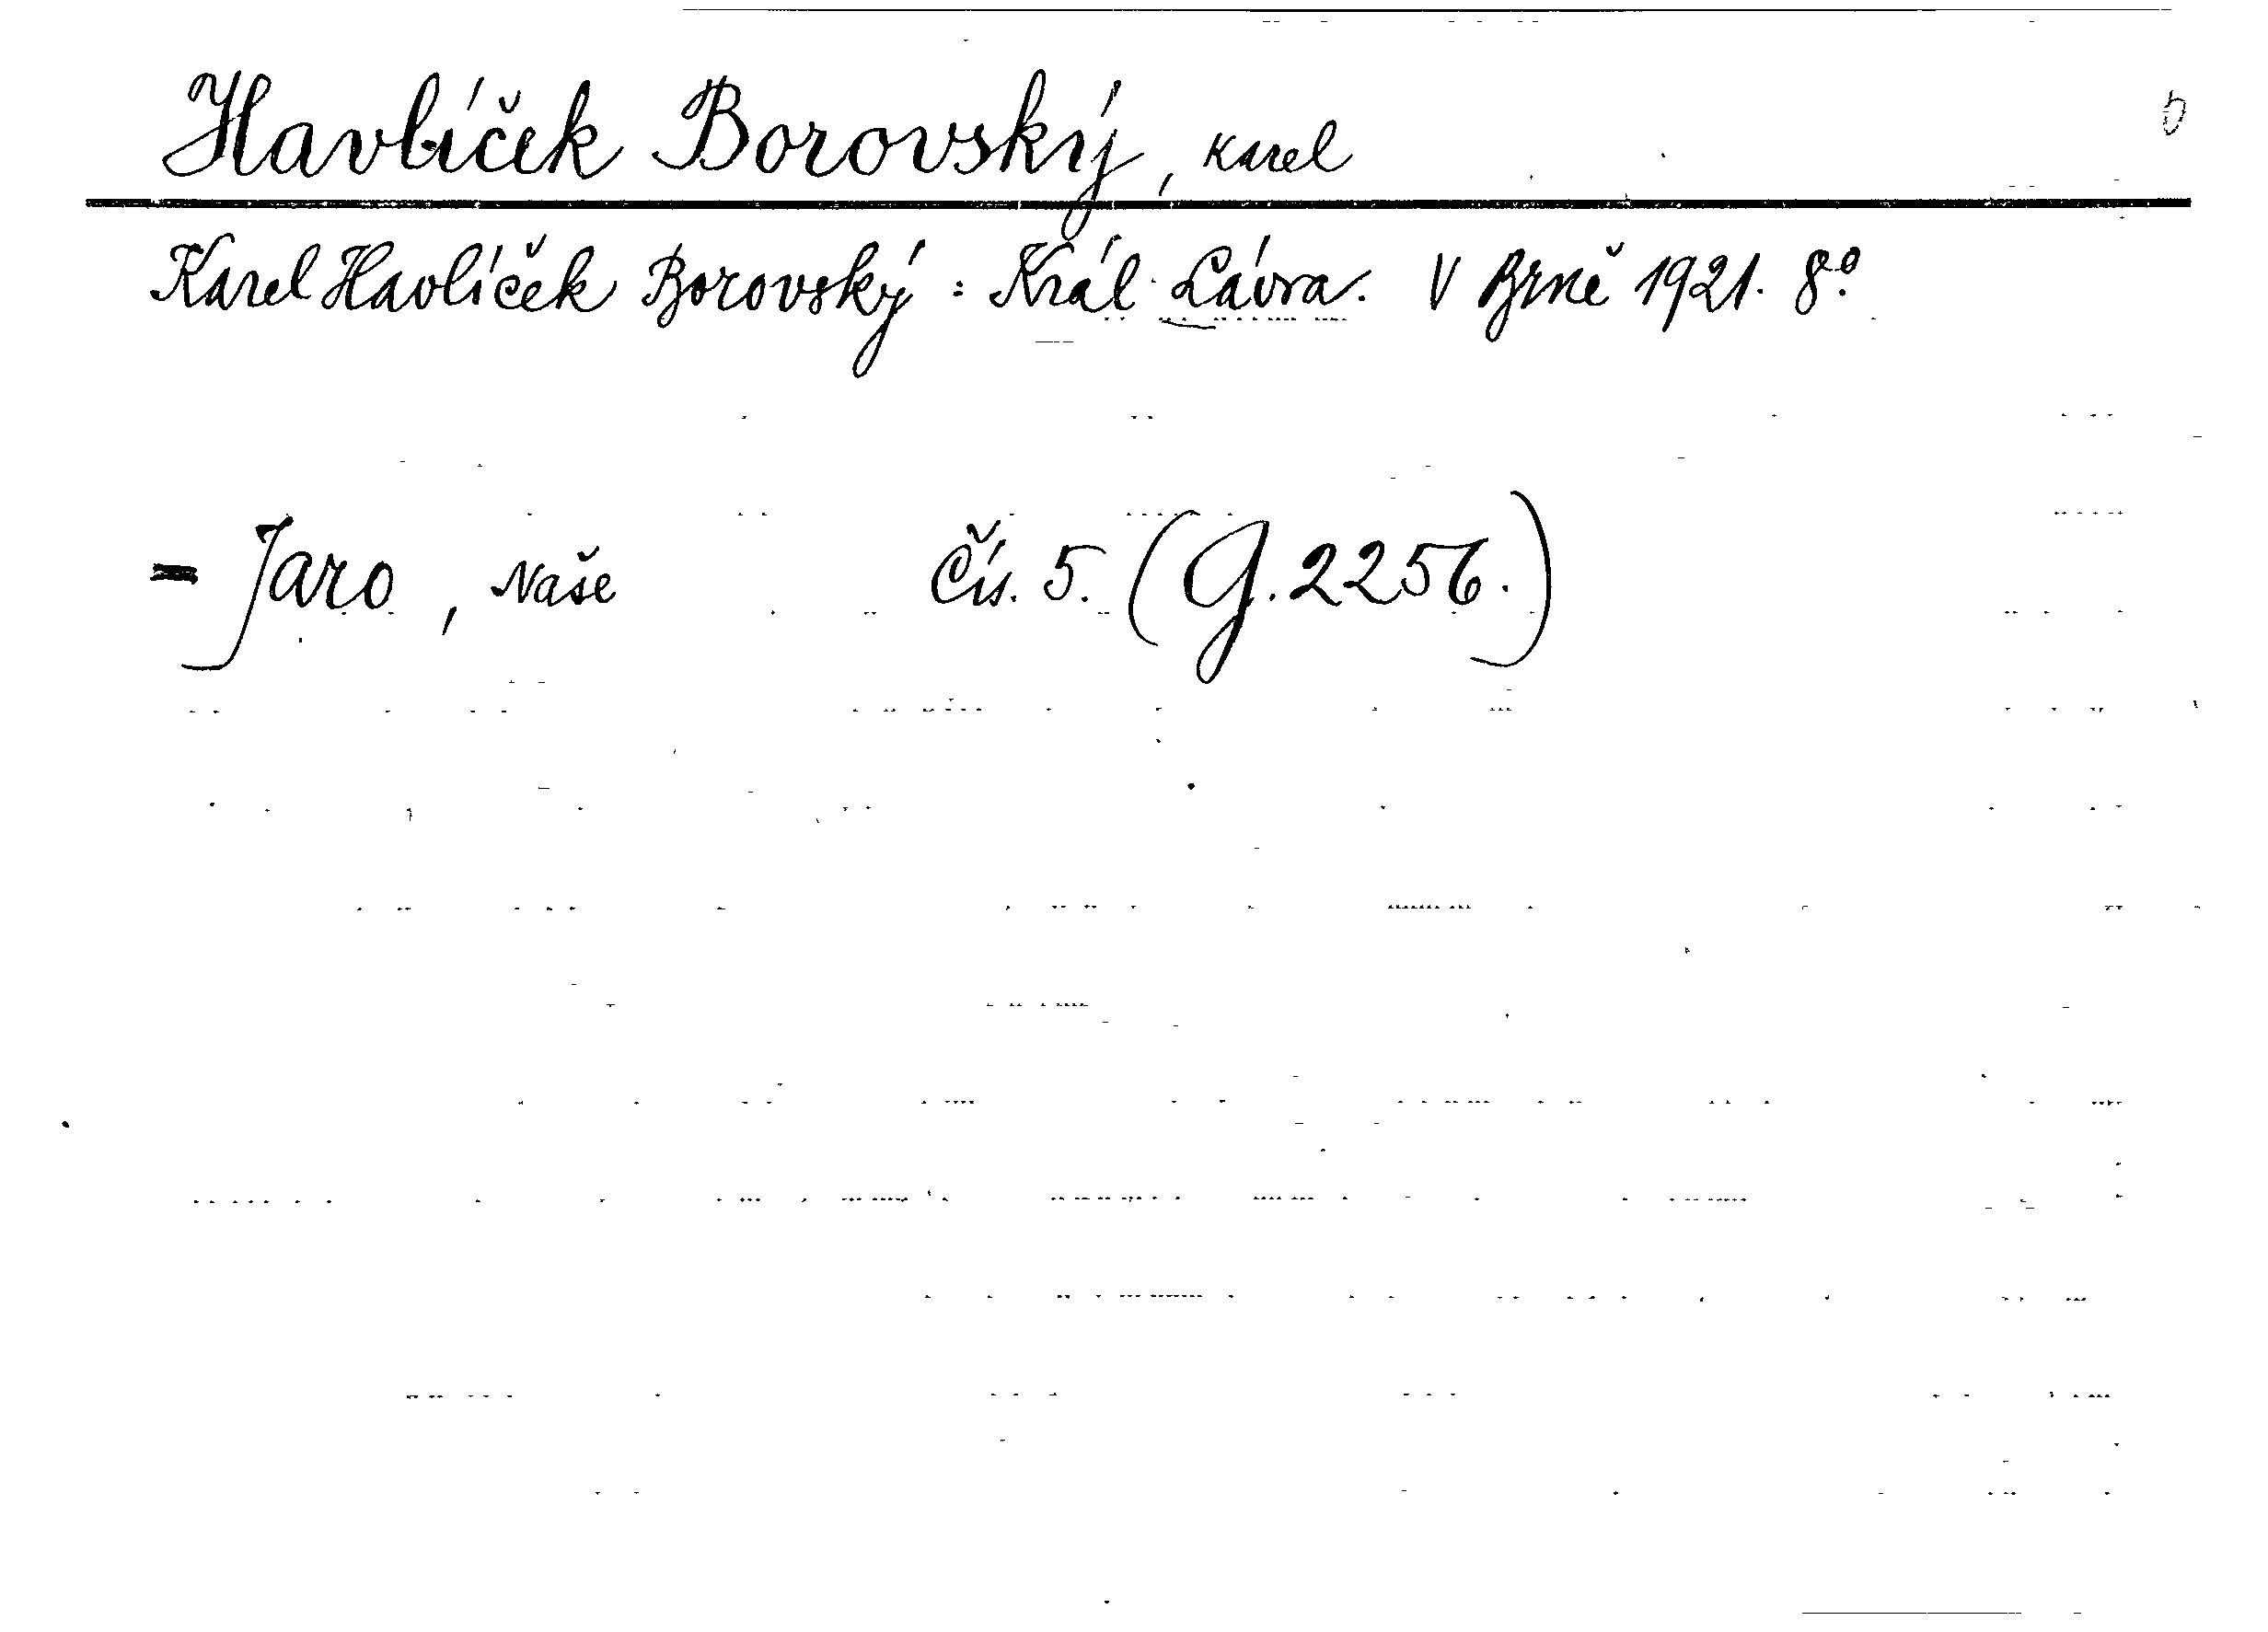 Havlíček Borovský, Karel
Karel Havlíček Borovský: Král Lávra. V Brně 1921. 8°.
= Jaro, Naše Čís. 5. (G. 2256.)